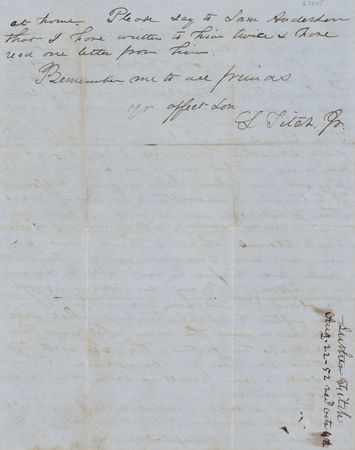 at home. Please say to Sam Anderson
that I have written to him twice & have
recd one letter from him
Remember me to all friends
yr affect son
L Fitch, Jr.
Luther Fitch
Aug. 22-52 recd Oct